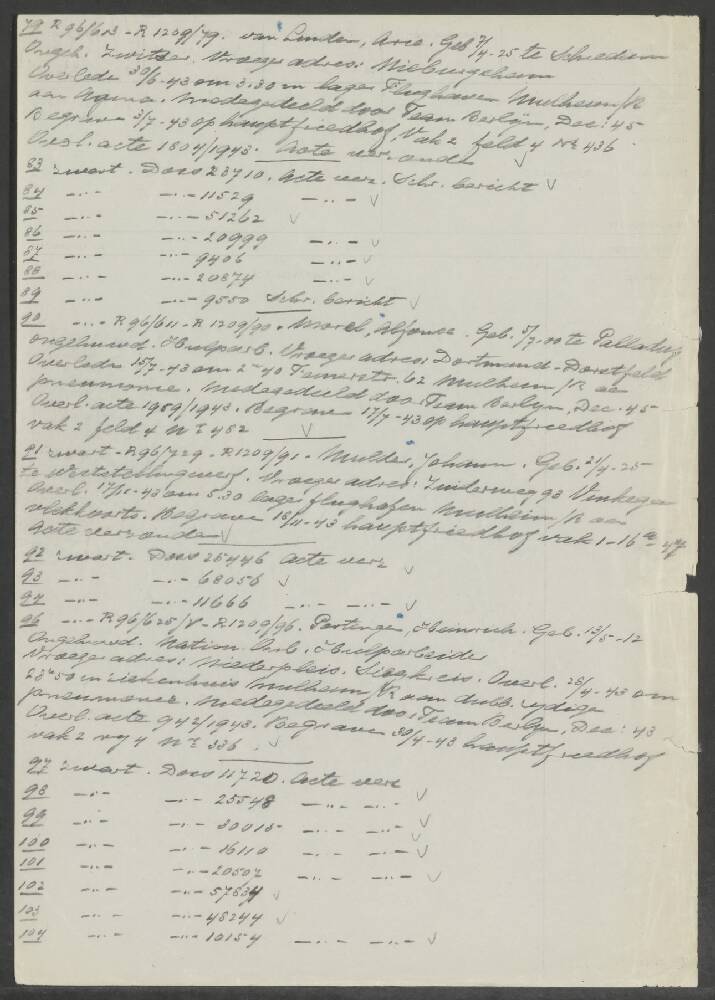 79 R 96/613 - R 1209/79. van Linden, Arie. Geb 7/4-25 te Schiedam
Ongeh. Zwitser. Vroeger adres:
Overlede 30/6-43 om 3.30 in lager Flughaven Mulheim/R
aan Agina. Medegedeeld door Team Berlijn, Dec: 45
Begrave 3/7-43 op hauptfriedhof, Vak 2 feld 4 No 436
Overl. acte 1804/1943. Acte ver. onde
83 zwart. Doss 23710. Acte verz. Schr. bericht V
84 -..- -..- 11529 -..- V
85 -..- -..- 51262 V
86 -..- -..- 20999 -..- V
87 -..- -..- 9406 -..- V
88 -..- -..- 20874 -..- V
89 -..- -..- 9550 Schr. bericht V
90 -..- R 96/611 - R 1209/90. Morel, Alfonse. Geb. 5/7-00 te
ongehuwd. Hulparb. Vroeger adres: Dortmund - Dorstfeld
Overleden 15/7-43 om 2 40 62 Mulheim/R aa
pneumonie. Medegedeeld door Team Berlijn, Dec. 45-
Overl. acte 1989/1943. Begrave 17/7-43 op hauptfriedhof
vak 2 feld 4 No 482 V
91 zwart - R96/729 - R1209/91 - Mulder, Johann. Geb. 21/4-25
te Weststellingwerf. Vroeger adres: Zuiderweg 93 Vinkega
Overl. 17/11-43 om 5.30 lager flughafen Mulheim/R aan
vlekkoorts. Begrave 18/11-43 hauptfriedhof vak 1-16
Acte verzonden V
92 zwart. Doss 25446 acte verz V
93 -..- -..- 68056 V
94 -..- -..- 11666 -..- -..- V
96 -..- R96/625/V - R1209/96. Portengen, Heinrich. Geb. 13/5-12
Ongehuwd. Nation. Onb. Hulparbeider
Vroeger adres: Niederpleis. Siegkreis. Overl. 28/4-43 om
23 50 in ziekenhuis Mulheim/R aan dubb. zijdige
pneumonie. Medegedeeld door Team Berlijn, Dec: 43
Overl. acte 942/1943. Begrave 30/4-43 hauptfriedhof
vak 2 rij 4 No 336. V
97 zwart. Doss 11720. Acte verz
98 -..- -..- 25548 -..- -..- V
99 -..- -..- 30015 -..- -..- V
100 -..- -..- 16110 -..- -..- V
101 -..- -..- 20502 -..- -..- V
102 -..- -..- 57834 V
103 -..- -..- 48244 V
104 -..- -..- 10154 -..- -..- V